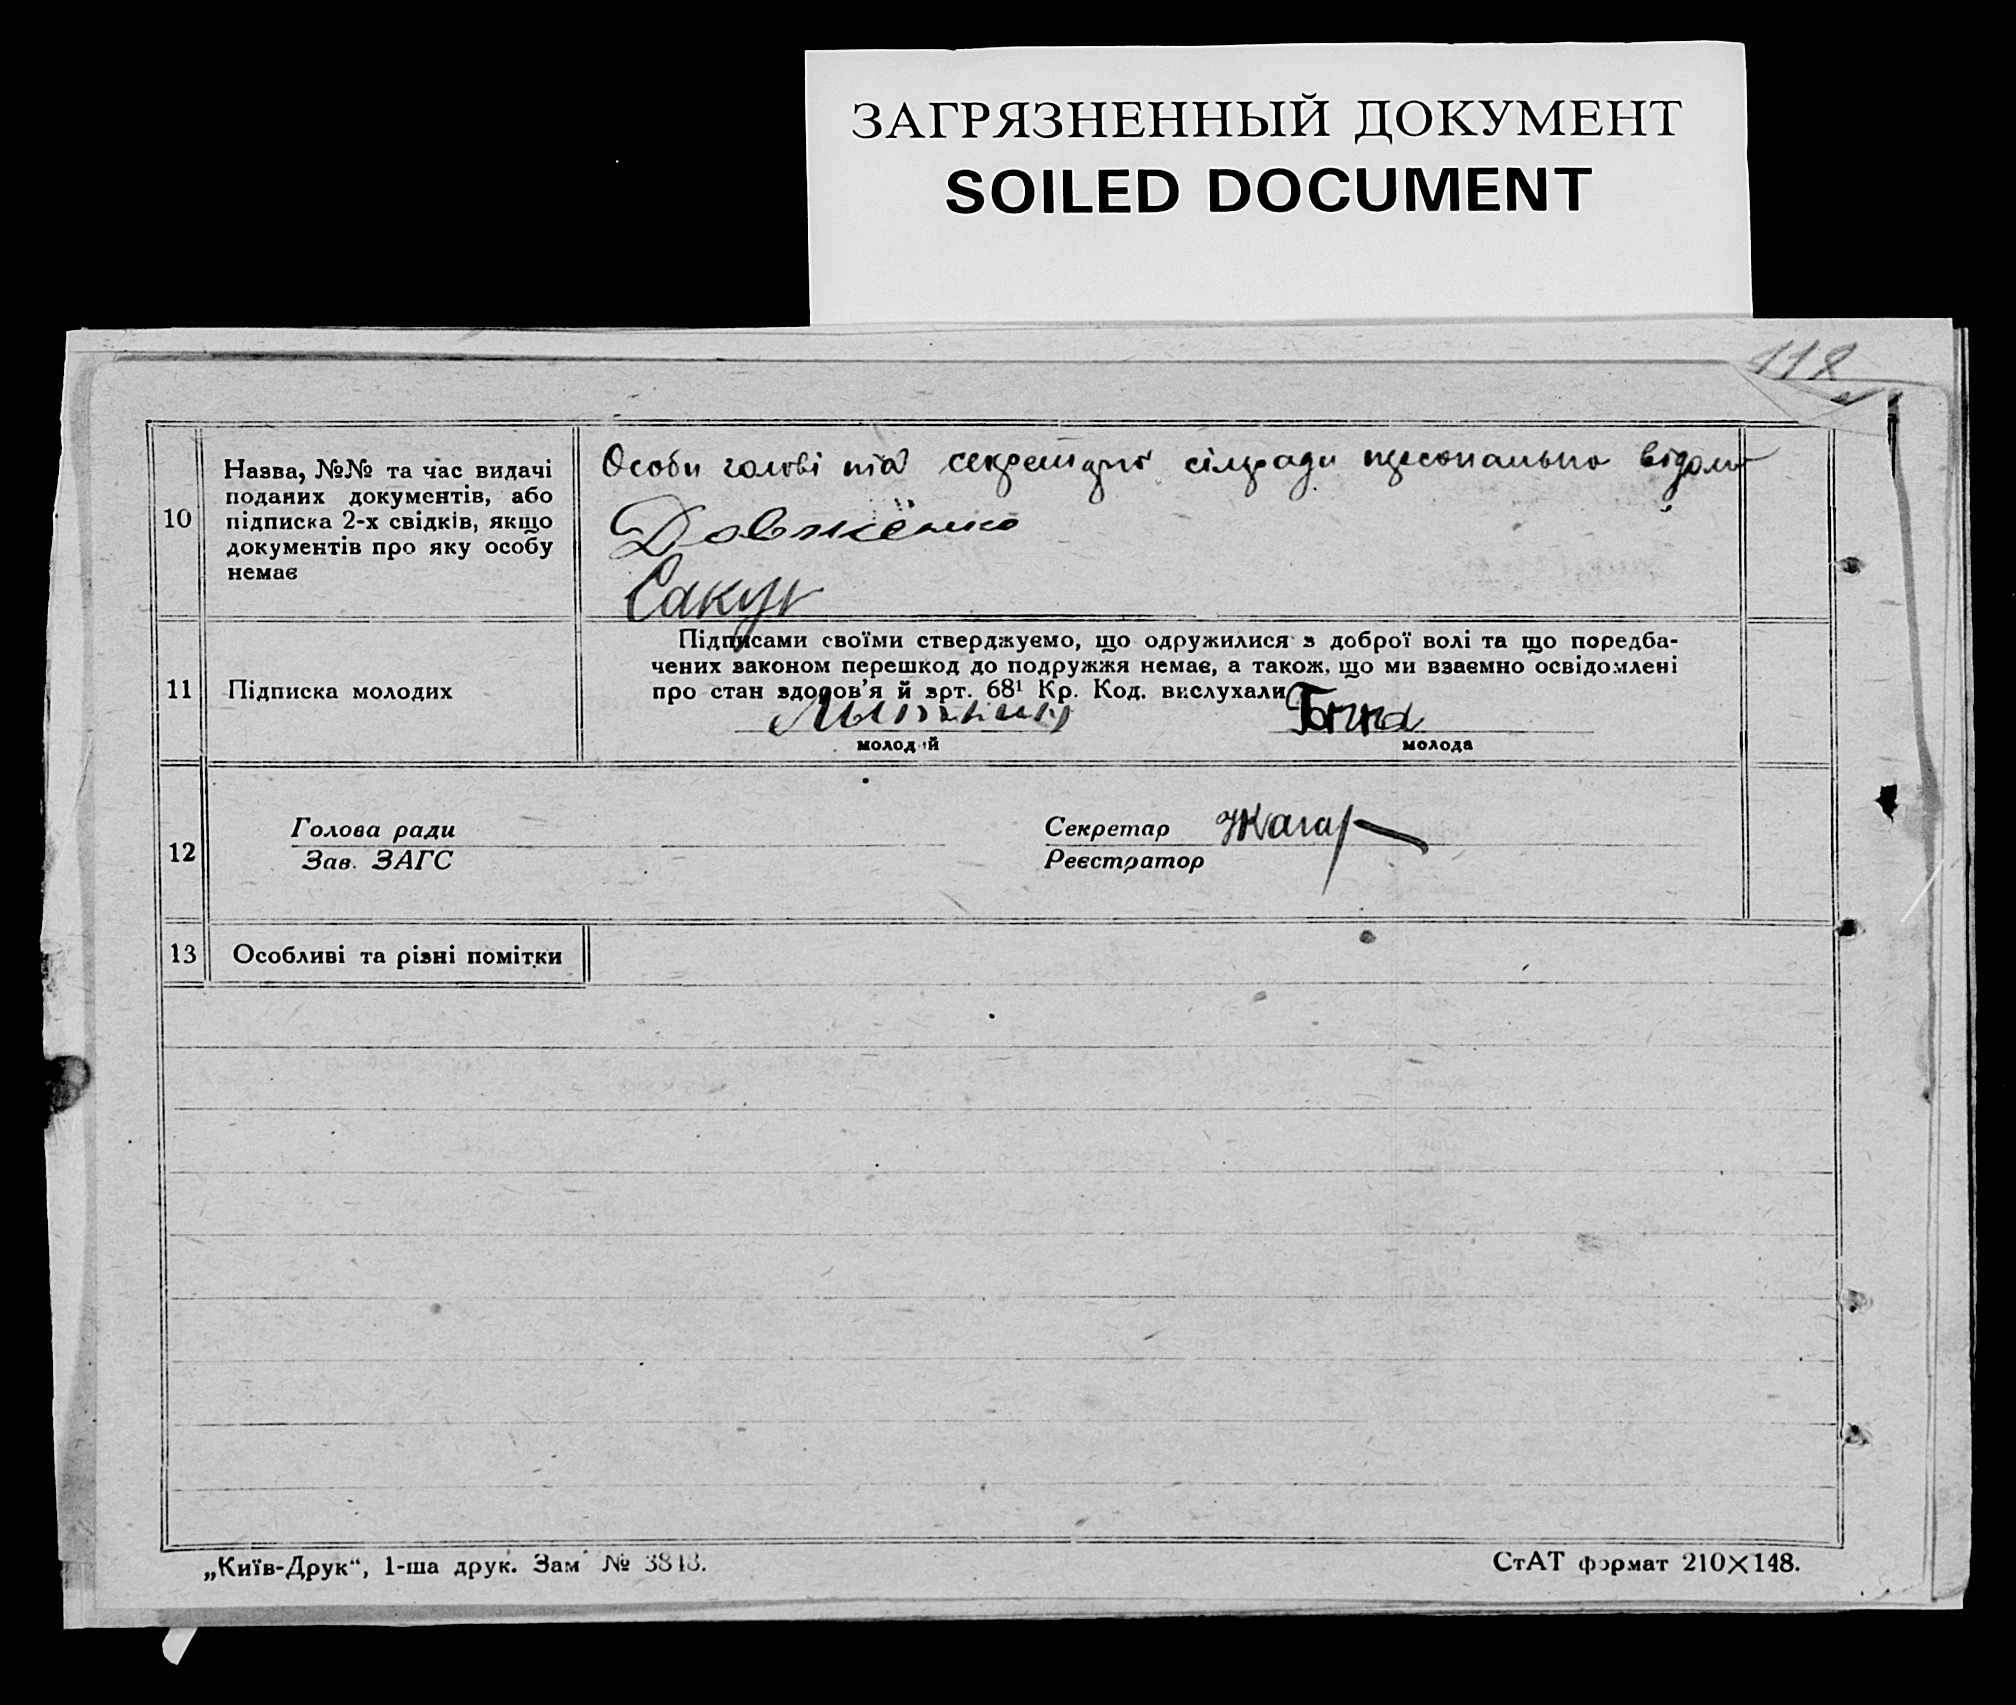 ЗАГРЯЗНЕННЫЙ ДОКУМЕНТ
SOILED DOCUMENT
118
10
Назва, №№ та час видачі
поданих документів, або
підписка 2-х свідків, якщо
документів про яку особу
немає
Особи голові та секретарю сілради персонально відомі
Довженко
Сакун
11
Підписка молодих
Підписами своїми стверджуємо, що одружилися з доброї волі та що поредба-
чених законом перешкод до подружжя немає, а також, що ми взаємно освідомлені
про стан здоров'я й арт. 68¹ Кр. Код. вислухали
молодий
молода
12
Голова ради
Зав. ЗАГС
Секретар
Реєстратор
13
Особливі та різні помітки
„Київ-Друк“, 1-ша друк. Зам № 3848.
СтАТ формат 210×148.